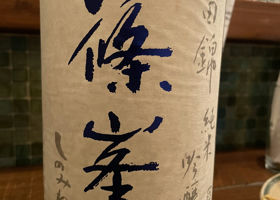 田錦 純米
吟醸
篠峯
しのみね